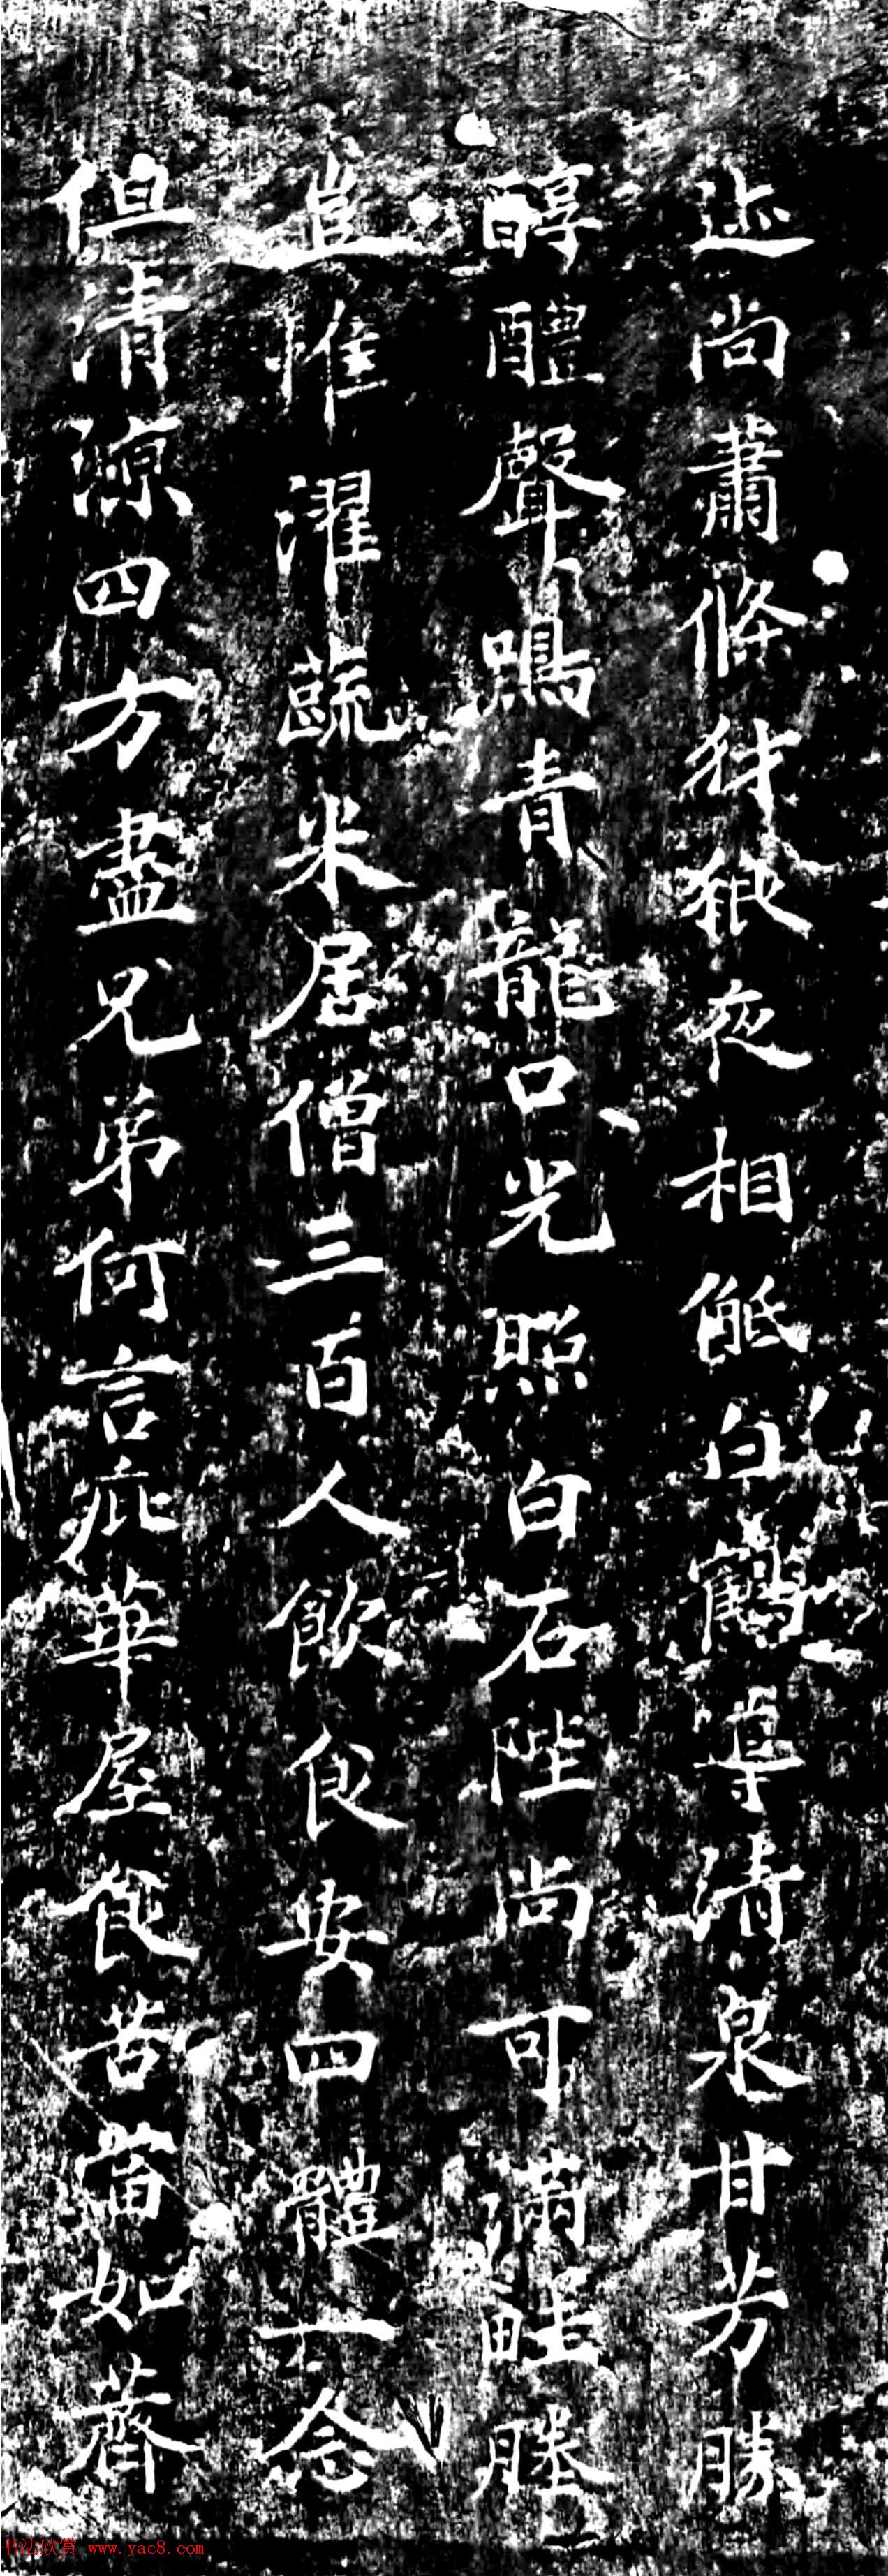 迹尚蕭條豺狼夜相觝白鶴導清泉甘芳勝
醇醴聲鳴青龍口光照白石陛尚可滿畦塍
豈惟濯蔬米居僧三百人飲食安四體一念
但清涼四方盡兄弟何言庇華屋食苦當如薺
书法欣赏 www.yac8.com